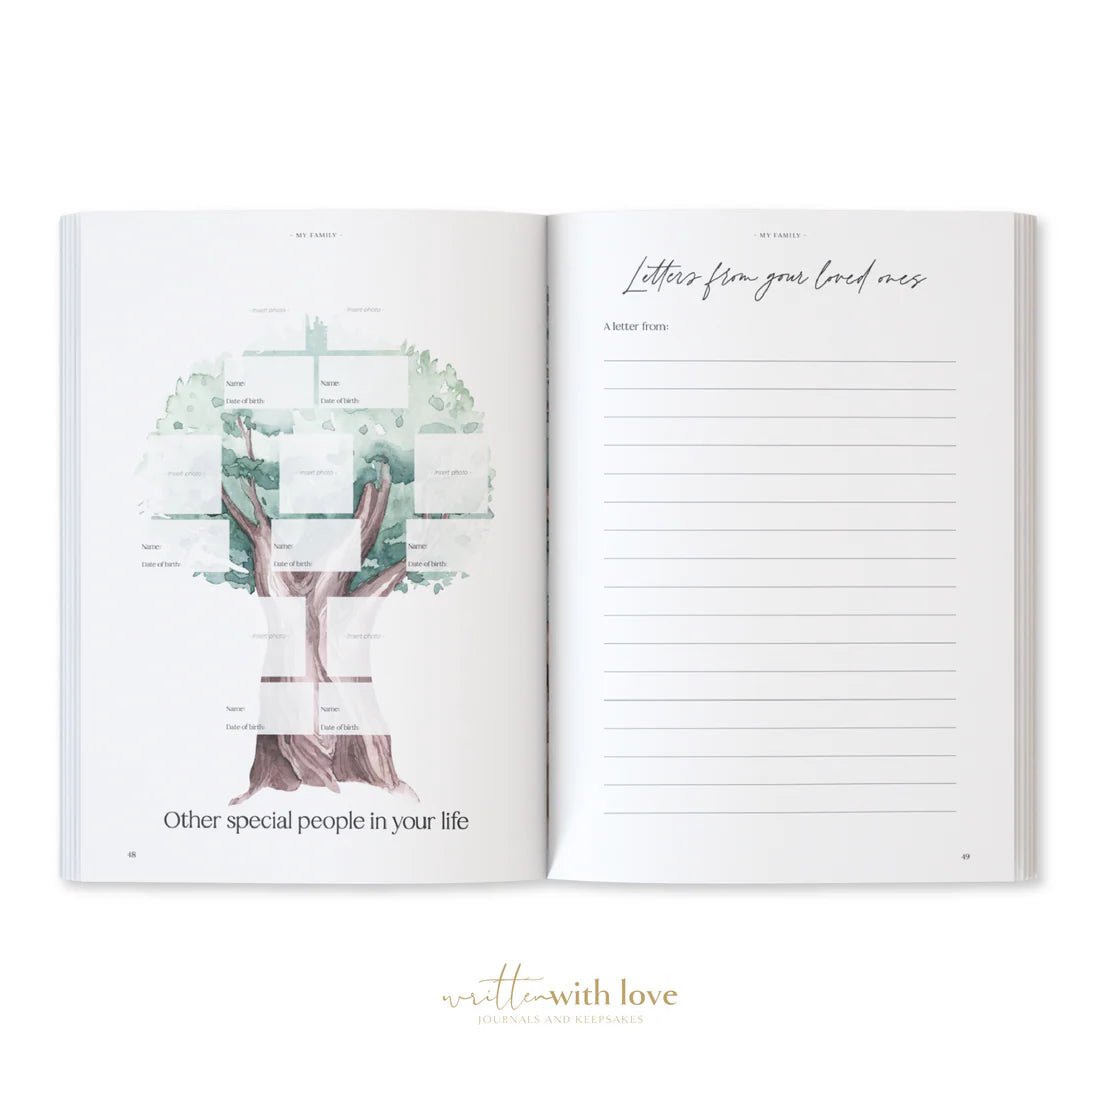 - MY FAMILY -
- Insert photo - - Insert photo -
Name: Name:
Date of birth: Date of birth:
- Insert photo - - Insert photo - - Insert photo -
Name: Name: Name:
Date of birth: Date of birth: Date of birth:
- Insert photo - - Insert photo -
Name: Name:
Date of birth: Date of birth:
Other special people in your life
48
- MY FAMILY -
Letters from your loved ones
A letter from:
49
written with love
JOURNALS AND KEEPSAKES